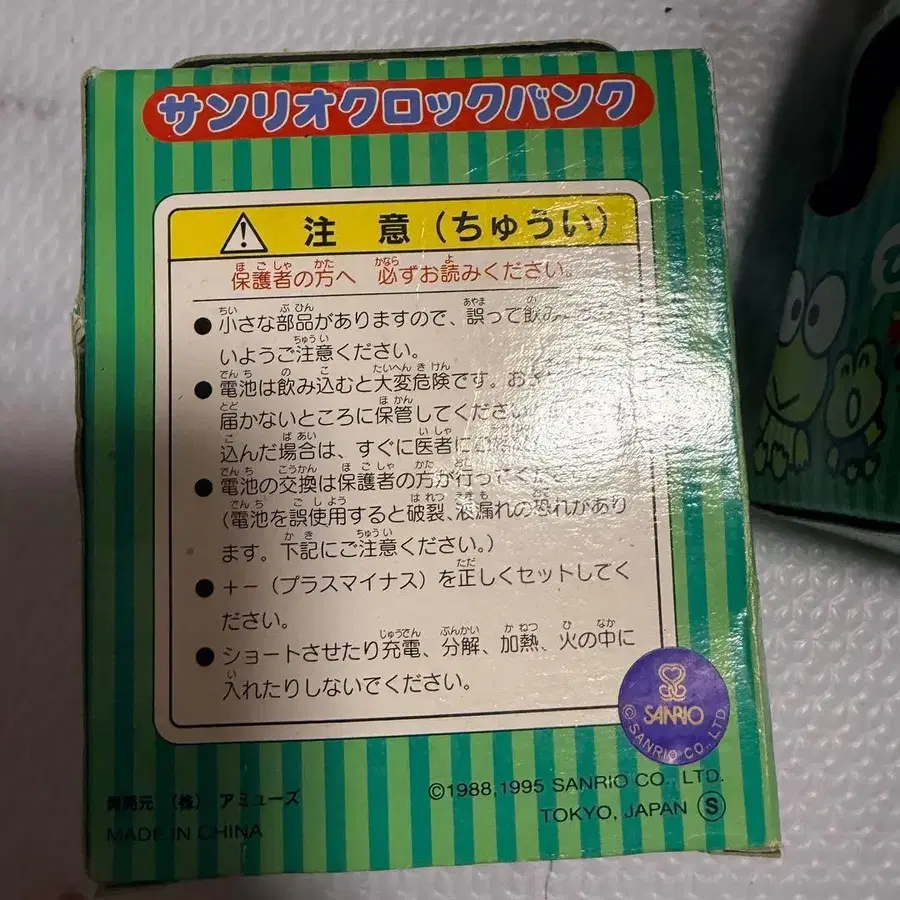 サンリオクロックバンク
注 意（ちゅうい）
保護者の方へ 必ずお読みください。
●小さな部品がありますので、誤って飲み
いようご注意ください。
●電池は飲み込むと大変危険です。お
届かないところに保管してください
込んだ場合は、すぐに医者に
●電池の交換は保護者の方が行ってください
(電池を誤使用すると破裂、液漏れの恐れがあり
ます。下記にご注意ください。)
●＋－（プラスマイナス）を正しくセットしてく
ださい。
●ショートさせたり充電、分解、加熱、火の中に
入れたりしないでください。
SANRIO
© SANRIO CO., LTD.
©1988,1995 SANRIO CO., LTD.
TOKYO, JAPAN Ⓢ
発売元 （株） アミューズ
MADE IN CHINA